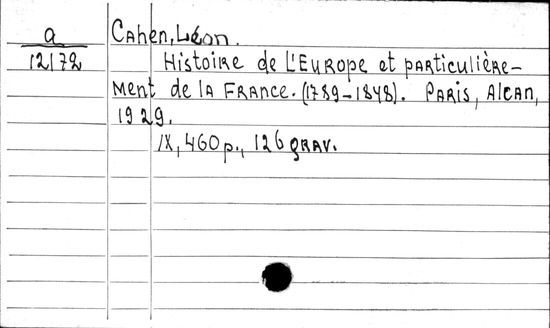 a
12172
Cahen, Léon.
Histoire de L'Europe et particulière-
ment de la France. (1789-1848). Paris, Alcan,
1929.
IX, 460 p., 126 grav.